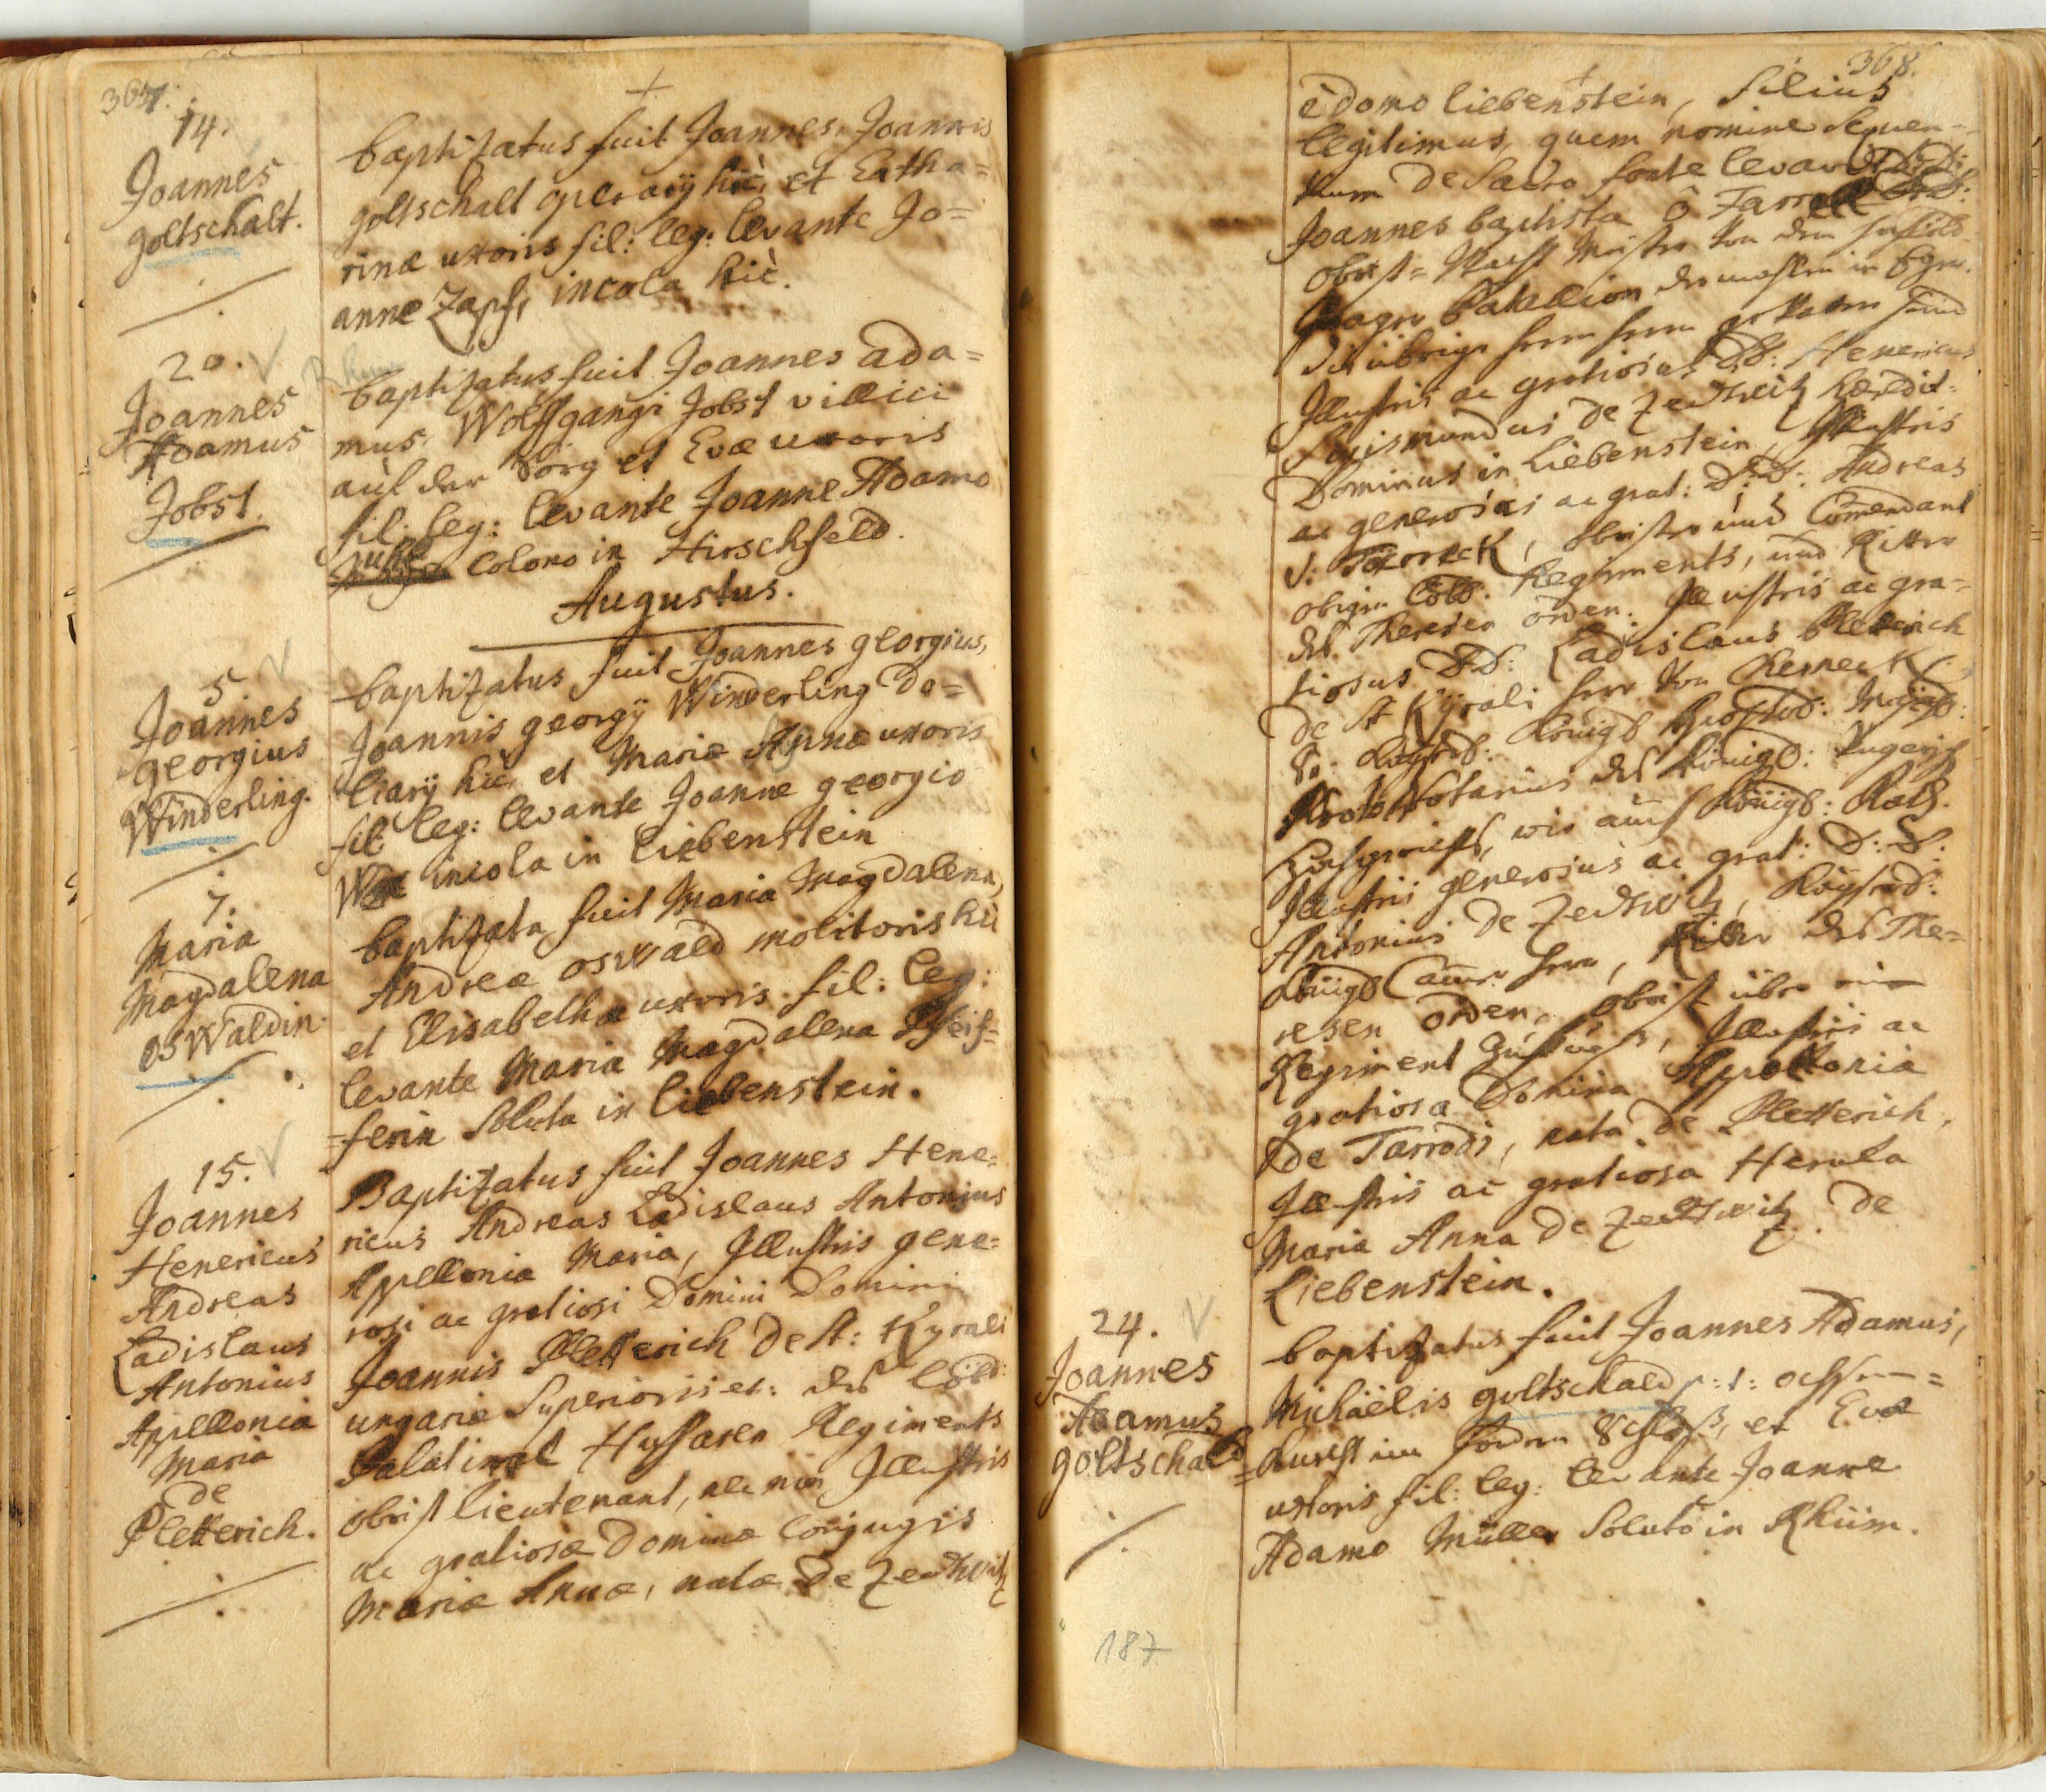 367.
14.
Joannes
goltschalt.
baptizatus fuit Joannes, Joannis
goltschalt operarij hic, et Catha=
rinæ uxoris fil: leg: levante Jo=
anne Zapf, incola hic.
20.
Joannes
Adamus
Jobst.
baptizatus fuit Joannes ada=
mus, Wolffgangi Jobst villici
auf der Sorg et Evæ uxoris
fil: leg: levante Joanne Adamo
colono in Hirschfeld.
Augustus.
5.
Joannes
georgius
Winderling.
baptizatus fuit Joannes georgius,
Joannis georgij Winderling do=
liarij hic, et Mariæ Annæ uxoris
fil: leg: levante Joanne georgio
incola in Liebenstein
7.
Maria
Magdalena
osWaldin.
baptizata fuit Maria Magdalena,
Andreæ osWald molitoris hic
et Elisabethæ uxoris fil: leg:
levante Maria Magdalena Pfeif=
=ferin soluta in Liebenstein.
15.
Joannes
Henericus
Andreas
Ladislaus
Antonius
Apellonia
Maria
de
Pletterich.
Baptizatus fuit Joannes Hene=
ricus Andreas Ladislaus Antonius
Apellonia Maria, Illustris gene=
rosi ac gratiosi Domini Domini
Joannis Pletterich de St: Kyrali
ungariæ Superioris des löbl:
Palatinal Hussaren Regiments
obrist lieutenant, nec non Illustris
ac gratiosæ Dominæ Conjugis
Mariæ Annæ, natæ de Zedtwitz
368.
è domo Liebenstein, filius
legitimus, quem nomine sequen=
tium de Sacro fonte levavit D: D:
Joannes baptista
obrist= Wacht Meister von dem
Prager Batallion der mahlen in Eger.
die übrige herrn herrn gevattern sind
Illustris ac gratiosus D: D: Henericus
Sigismundus de Zedtwitz hæredit:
Dominus in Liebenstein, Illustris
ac generosus ac grat: D: D: Andreas
obrister und Commendant
obigen löbl: Regiments, und Ritter
des Theresien orden. Illustris ac gra=
tiosus D: D: Ladislaus Pletterich
de St Kyrali herr von
Kayserl: Königl Apostol: Mayest:
Protonotarius des Königl: Ungarisch
wie auch Königl: Rath.
Illustris generosus ac grat: D: D:
Antonius de Zedtwitz, Kayserl:
Königl Camer herr, Ritter des The=
resien orden, obrist über ein
Regiment Illustris ac
gratiosa Domina Apollonia
de Tarrodi, nata de Pletterich,
Illustris ac gratiosa Herula
Maria Anna de Zedtwitz de
Liebenstein.
24.
Joannes
Adamus
goltschald
baptizatus fuit Joannes Adamus,
Michäelis goltschald p: t: ochsen=
=knecht im fordern Schloß, et Evæ
uxoris fil: leg: levante Joanne
Adamo Müller soluto in Khüm.
187